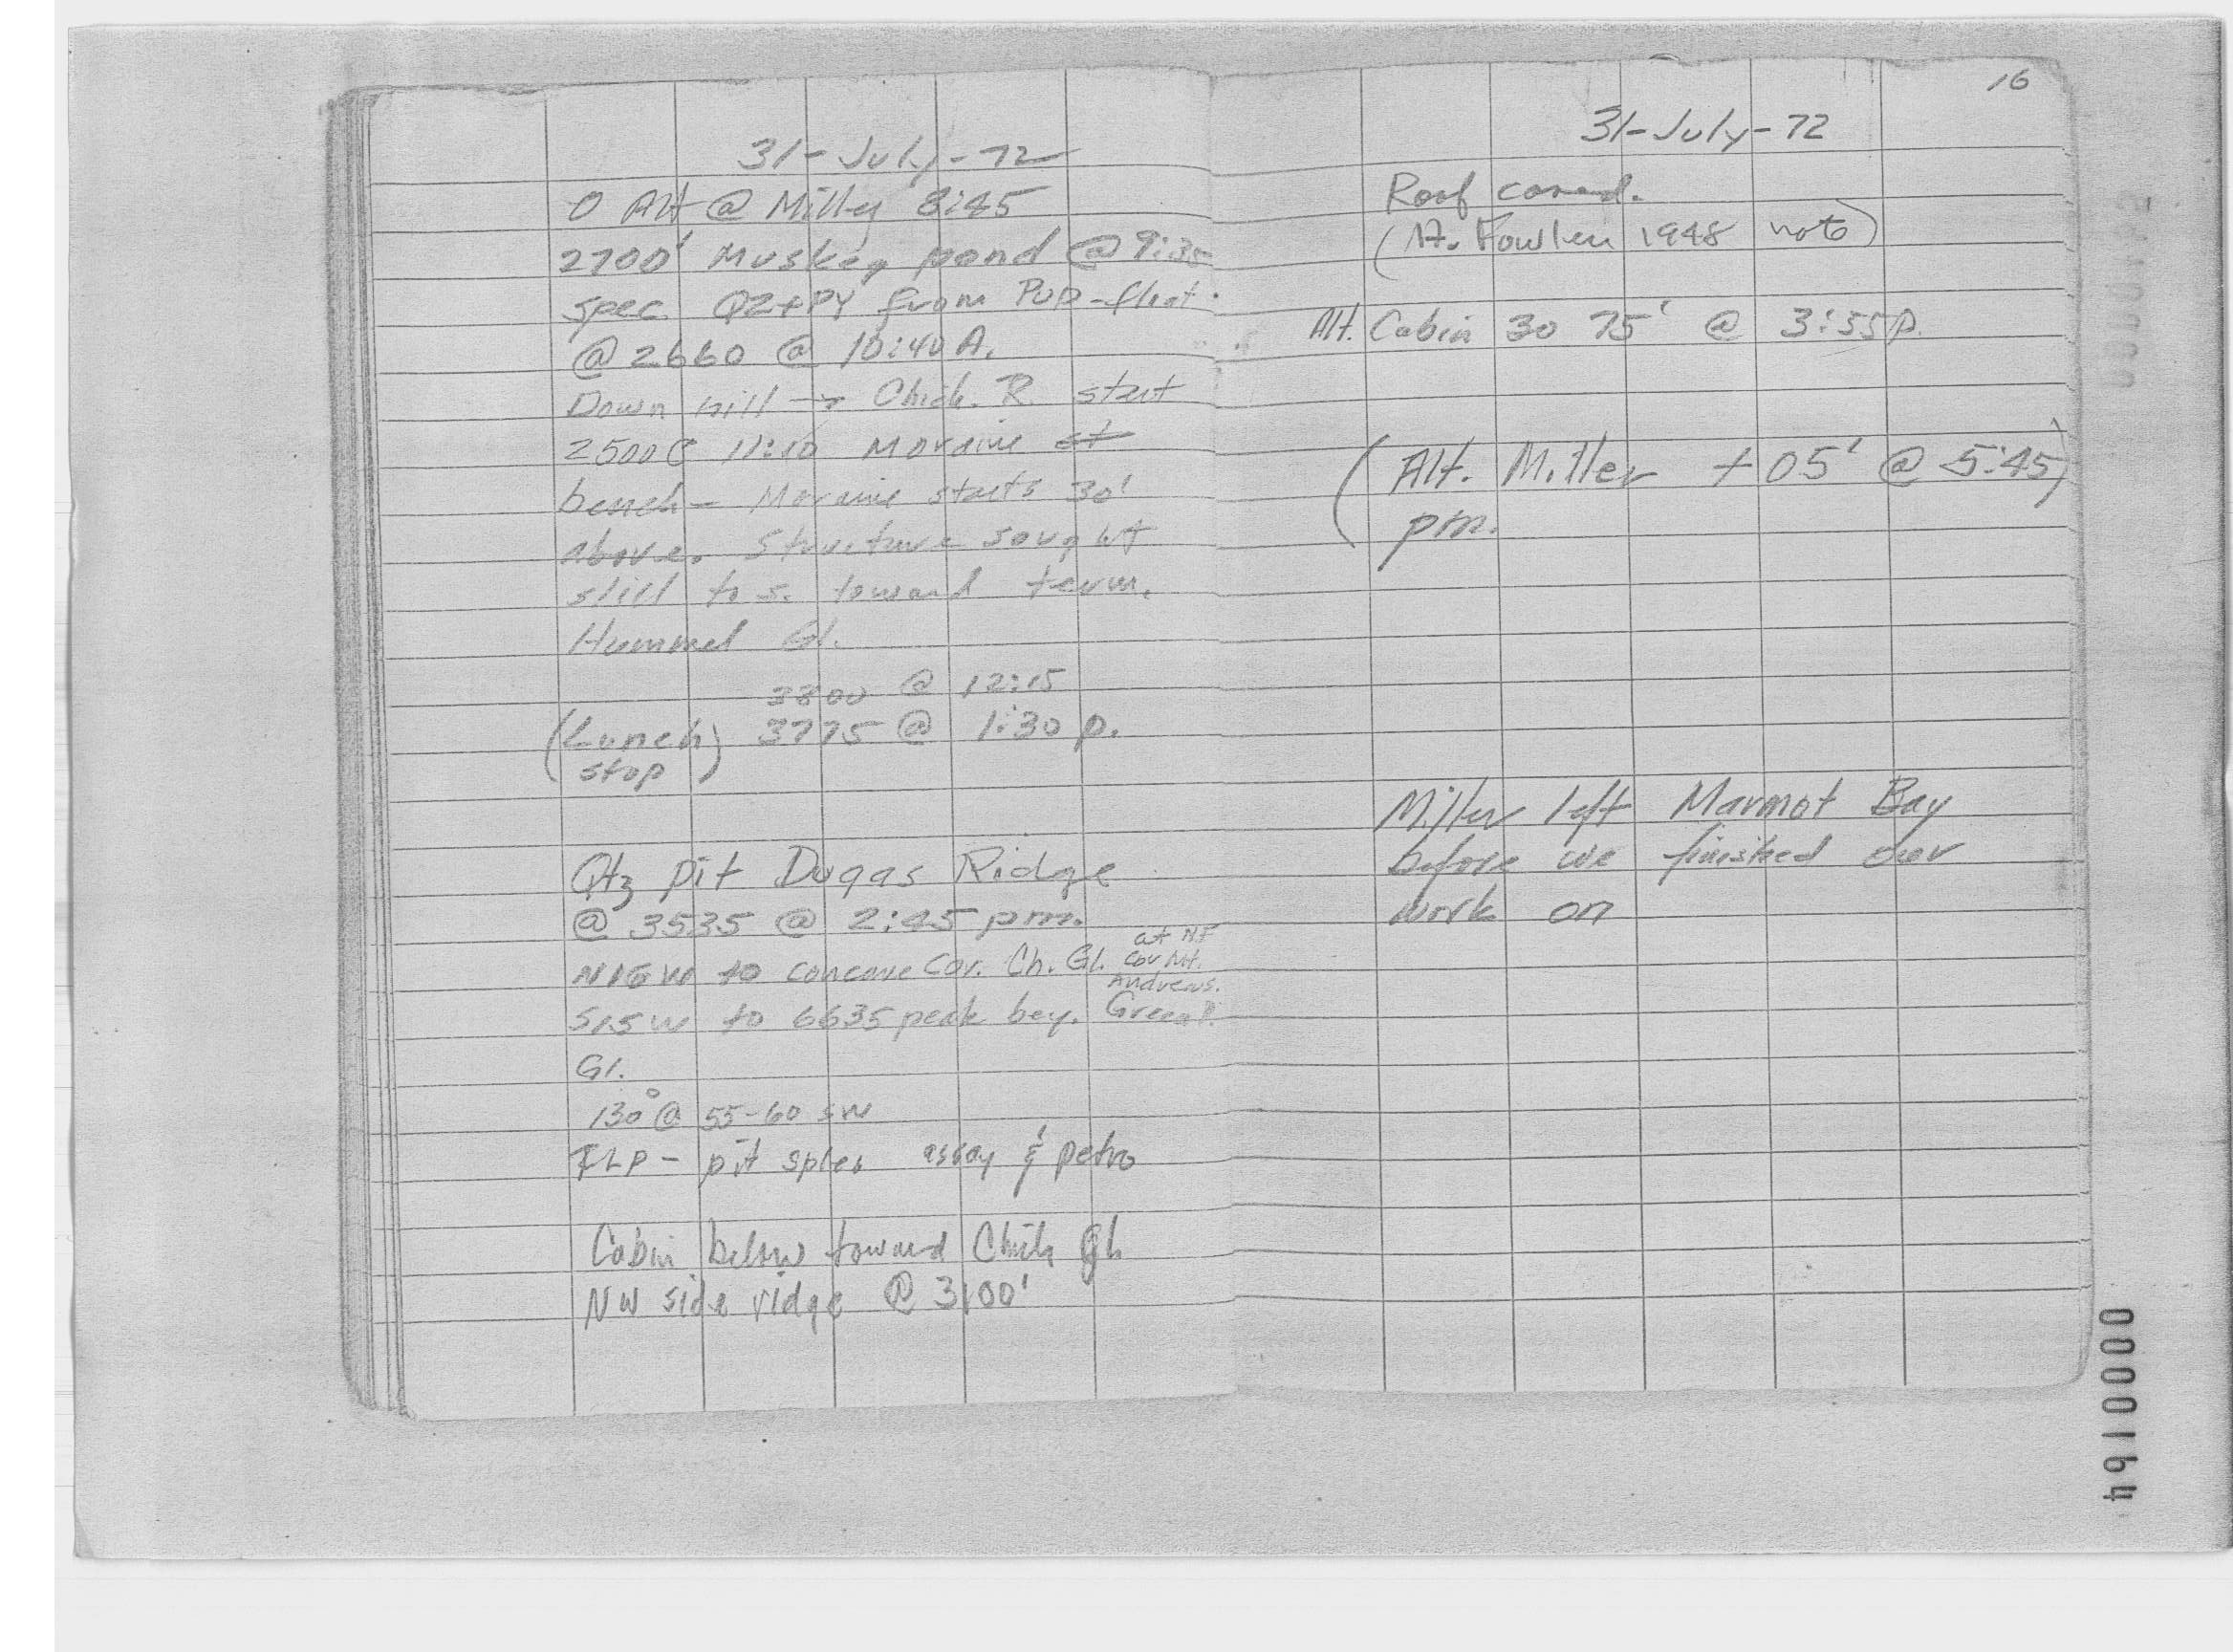 31-July-72
0 Alt @ Miller 8:45
2700' Muskeg pond @ 9:35
spec QZ+PY from PUP-float.
@ 2660 @ 10:40 A.
Down hill → Chich. R. start
2500 @ 11:10 Moraine at
bench - Moraine starts 30'
above. Structure sought
still to S. toward term.
Hummel Gl.
3800 @ 12:15
(Lunch) 3775 @ 1:30 p.
stop
Qtz pit Dugas Ridge
@ 3535 @ 2:45 pm.
N16W to concave Cor. Ch. Gl. at NF
Cor Mt.
Andrews.
S15W to 6635 peak bey. Greenp.
Gl.
130° @ 55-60 SW
FLP - pit sples assay & petro
Cabin below toward Chich Gl
NW side ridge @ 3100'
16
31-July-72
Roof caved.
(A. Fowler 1948 note)
Alt. Cabin 3075' @ 3:55 p.
(Alt. Miller +05' @ 5:45)
pm.
Miller left Marmot Bay
before we finished our
work on
0000194